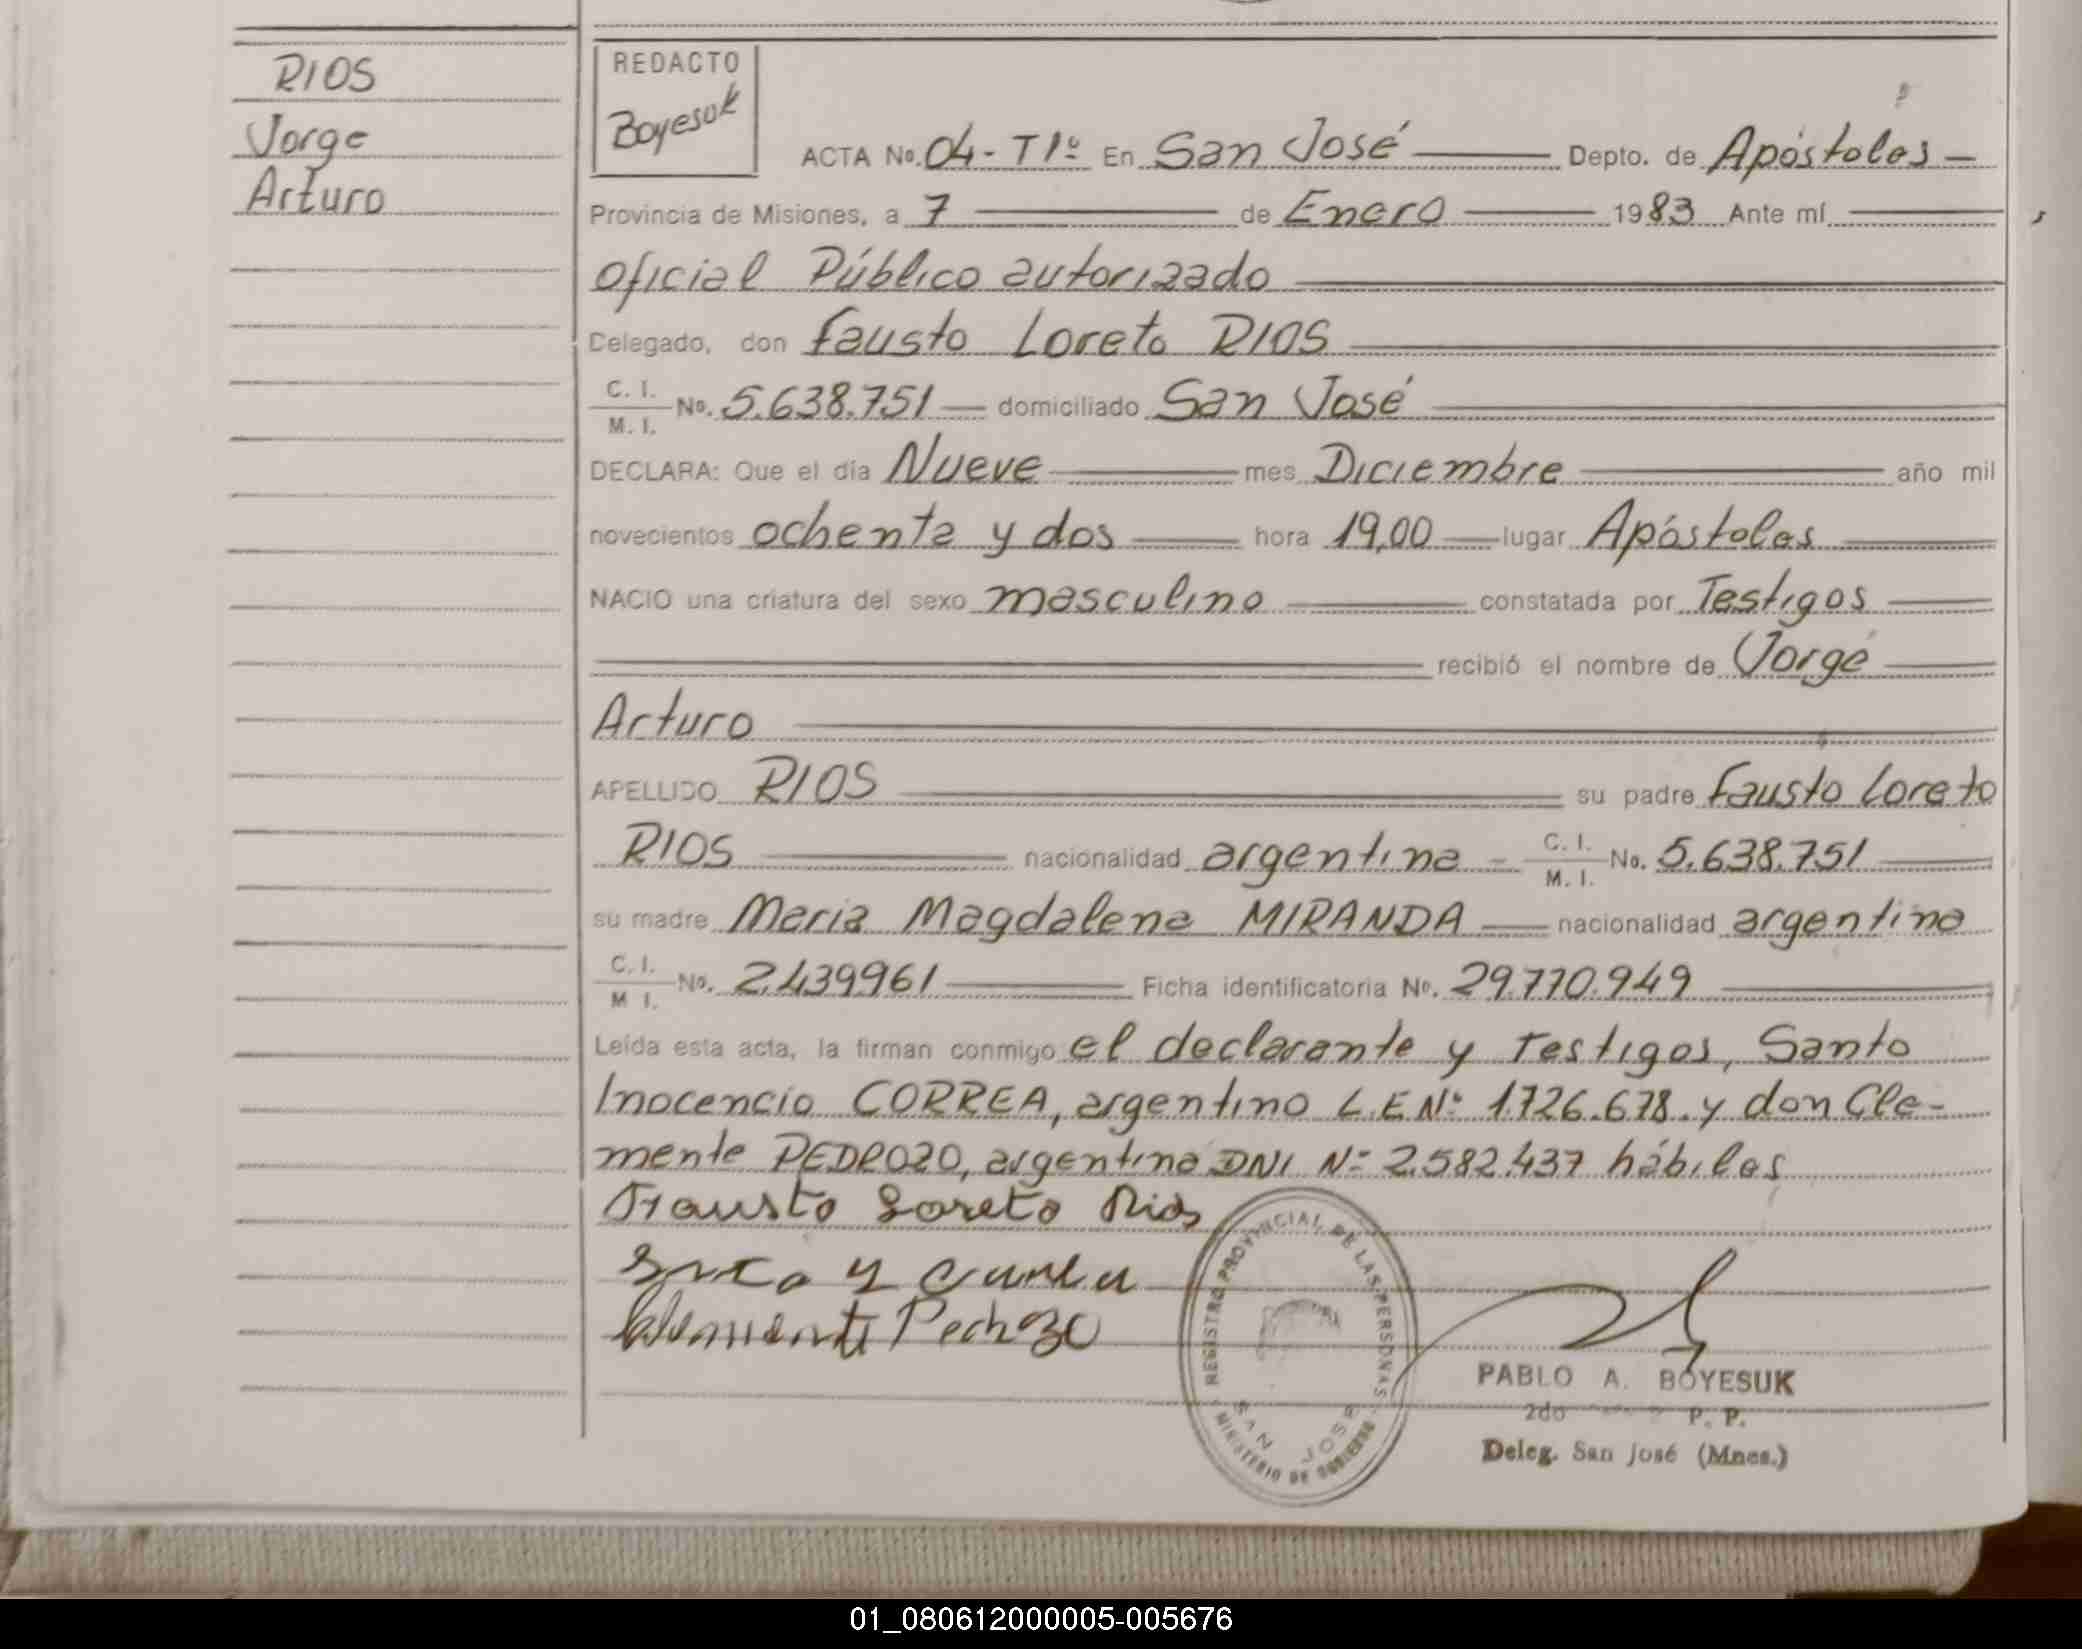 RIOS
Jorge
Arturo
REDACTO
Boyesuk
ACTA No. 04-T1º En San José Depto. de Apóstoles
Provincia de Misiones, a 7 de Enero 1983 Ante mí
Oficial Público autorizado
Delegado, don Fausto Loreto RIOS
C. I.
M. I. No. 5.638.751 domiciliado San José
DECLARA: Que el día Nueve mes Diciembre año mil
novecientos ochenta y dos hora 19,00 lugar Apóstoles
NACIO una criatura del sexo masculino constatada por Testigos
recibió el nombre de Jorge
Arturo
APELLIDO RIOS su padre Fausto Loreto
RIOS nacionalidad argentina C. I.
M. I. No. 5.638.751
su madre Maria Magdalena MIRANDA nacionalidad argentina
C. I.
M. I. No. 2.439961 Ficha identificatoria No. 29.770.949
Leída esta acta, la firman conmigo el declarante y Testigos, Santo
Inocencio CORREA, argentino L.E Nº 1.726.678. y don Cle-
mente PEDROZO, argentino DNI Nº 2.582.437 hábiles
Fausto Loreto Rios
REGISTRO PROVINCIAL DE LAS PERSONAS
SAN JOSE
MINISTERIO DE GOBIERNO
PABLO A. BOYESUK
2do P. P.
Deleg. San José (Mnes.)
01_080612000005-005676